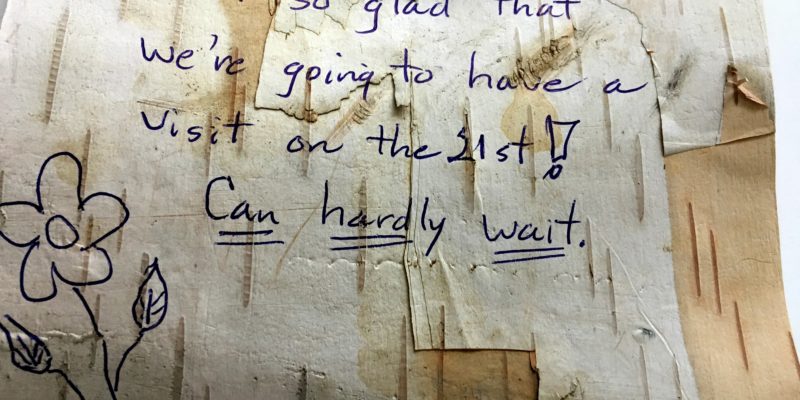 so glad that
We're going to have a
visit on the 21st!
Can hardly wait.